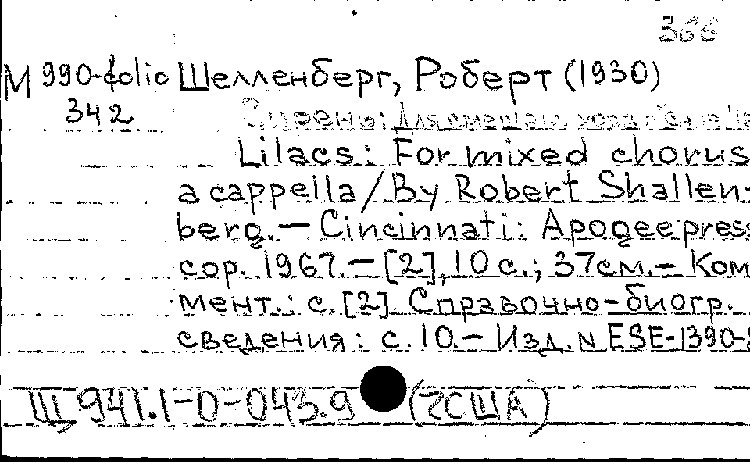 366
М 990-folio Шелленберг, Роберт (1930)
342
Сирень: Для смешан. хора
Lilacs: For mixed chorus
a cappella/By Robert Shallen-
berg.— Cincinnati: Apogee press
cop. 1967.— [2], 10 с.; 37см.— Ком
мент.: с. [2] Справочно-биогр.
сведения: с. 10.— Изд. N ESE-1390-
Щ 941.1-0-043.9 (7США)